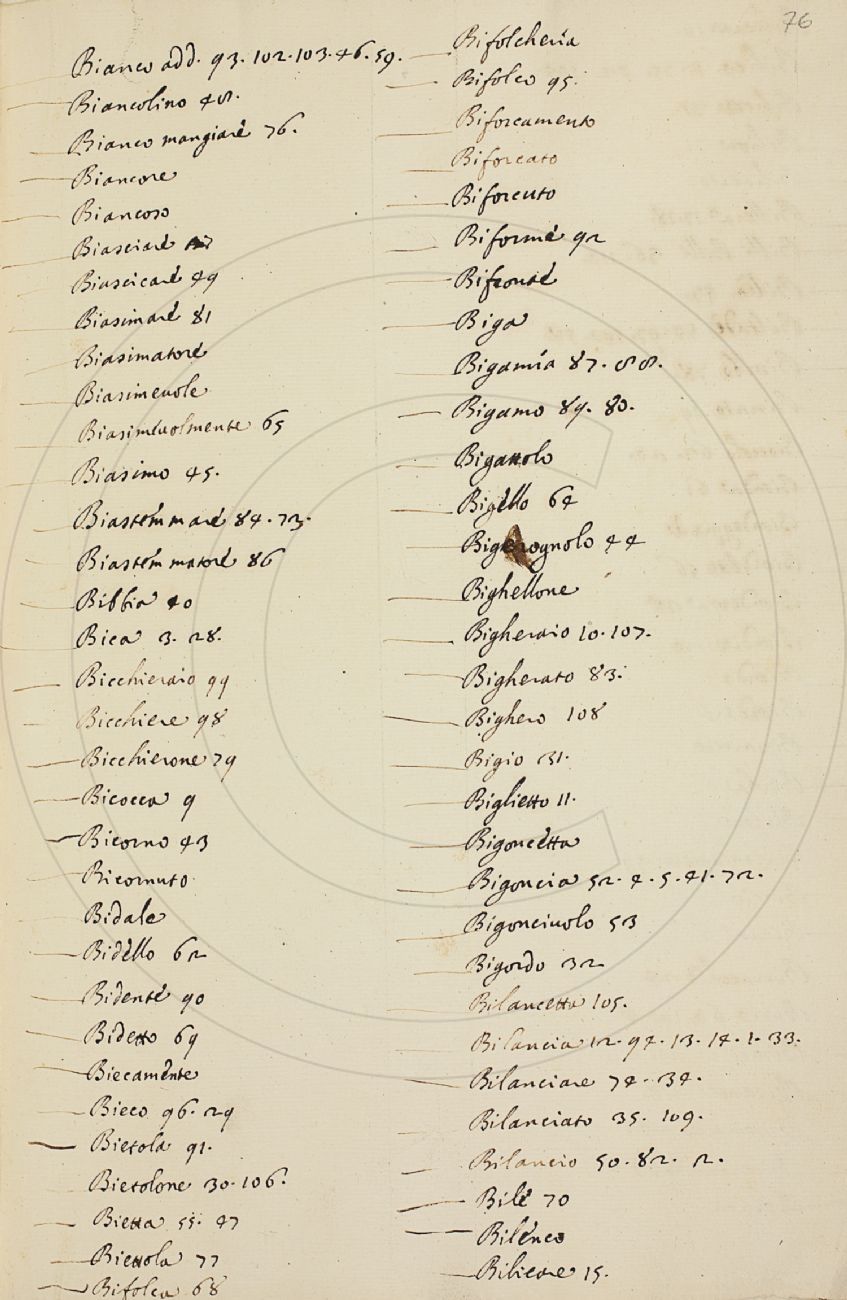 76
Bianco add. 93. 102. 103. 46. 59.
Biancolino 48.
Bianco mangiare 76.
Biancore
Biancoso
Biasciare
Biascicare 49
Biasimare 81
Biasimatore
Biasimeuole
Biasimeuolmente 65
Biasimo 45.
Biastemmare 84. 73.
Biastemmatore 86
Bibbia 40
Bica 3. 28.
Bicchieraio 99
Bicchiere 98
Bicchierone 79
Bicocca 9
Bicorno 43
Bicornuto
Bidale
Bidello 62
Bidente 90
Bidetto 69
Biecamente
Bieco 96. 29
Bietola 91.
Bietolone 30. 106.
Bietta 55. 47
Biettola 77
Bifolca 68
Bifolcheria
Bifolco 95.
Biforcamento
Biforcato
Biforcuto
Biforme 92
Bifronte
Biga
Bigamia 87. 88.
Bigamo 89. 80.
Bigattolo
Bigello 64
Bigerognolo 44
Bighellone
Bigheraio 10. 107.
Bigherato 83.
Bighero 108
Bigio 31.
Biglietto 11.
Bigoncetta
Bigoncia 52. 4. 5. 41. 72.
Bigonciuolo 53
Bigordo 32
Bilancetta 105.
Bilancia 12. 94. 13. 14. 1. 33.
Bilanciare 74. 34.
Bilanciato 35. 109.
Bilancio 50. 82. 2.
Bile 70
Bilenco
Bilicare 15.